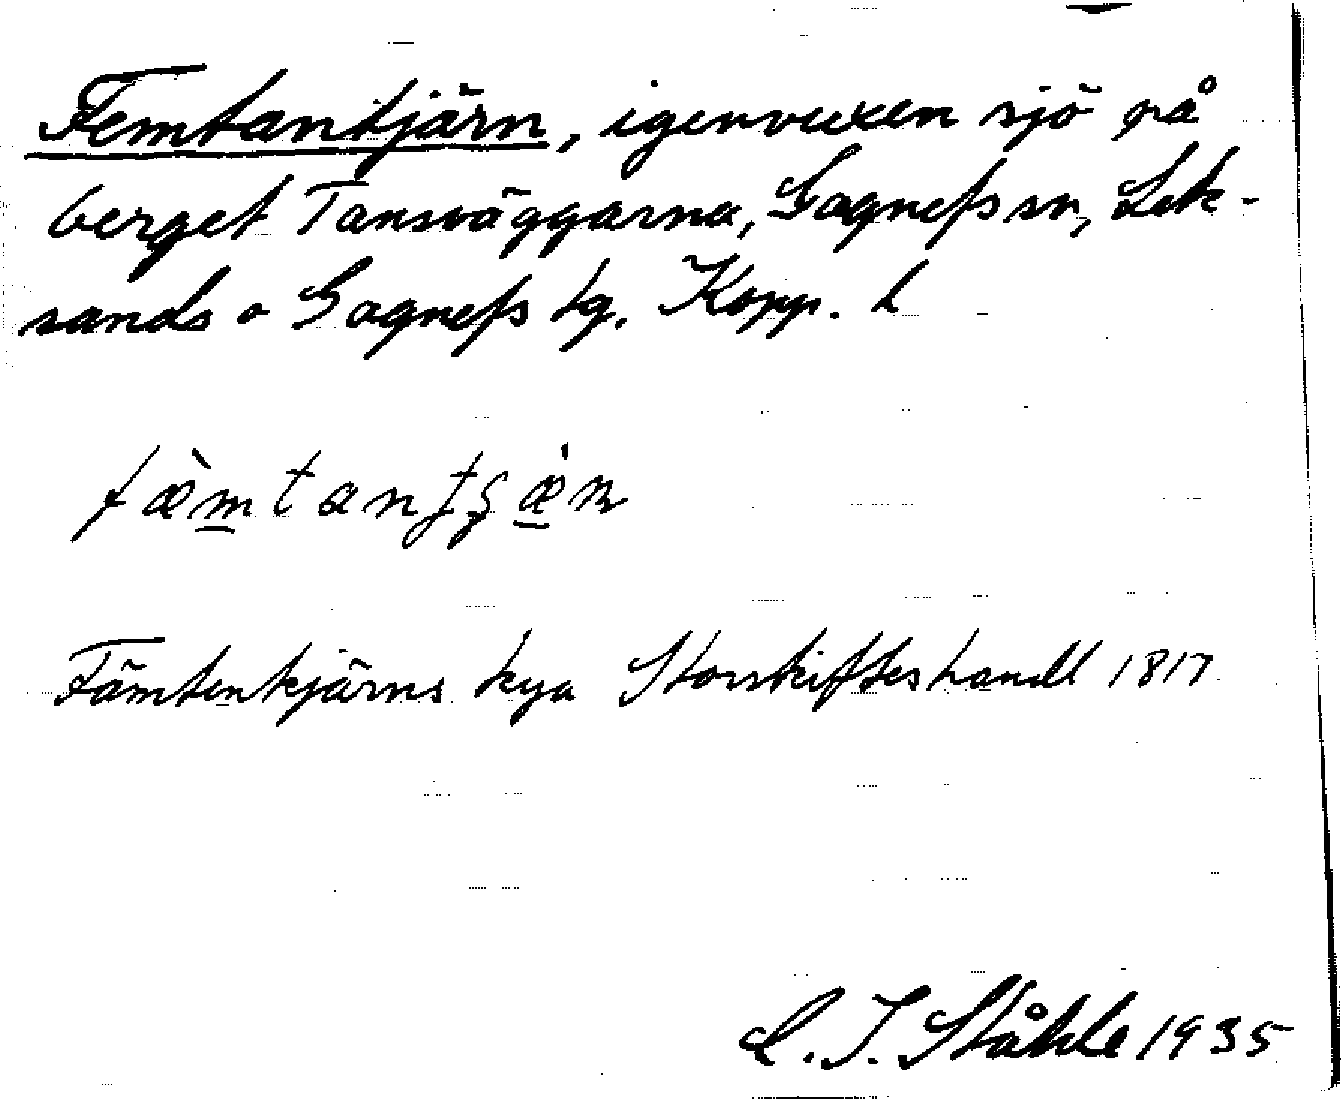 Femtantjärn, igenvuxen sjö på
berget Tansväggarna, Gagnefs sn, Lek-
sands o Gagnefs tg. Kopp. l
fæ̀m̲tantʂæ̲̍n
Fämtentjärns kya Storskifteshandl 1817
L. I. Ståhle 1935